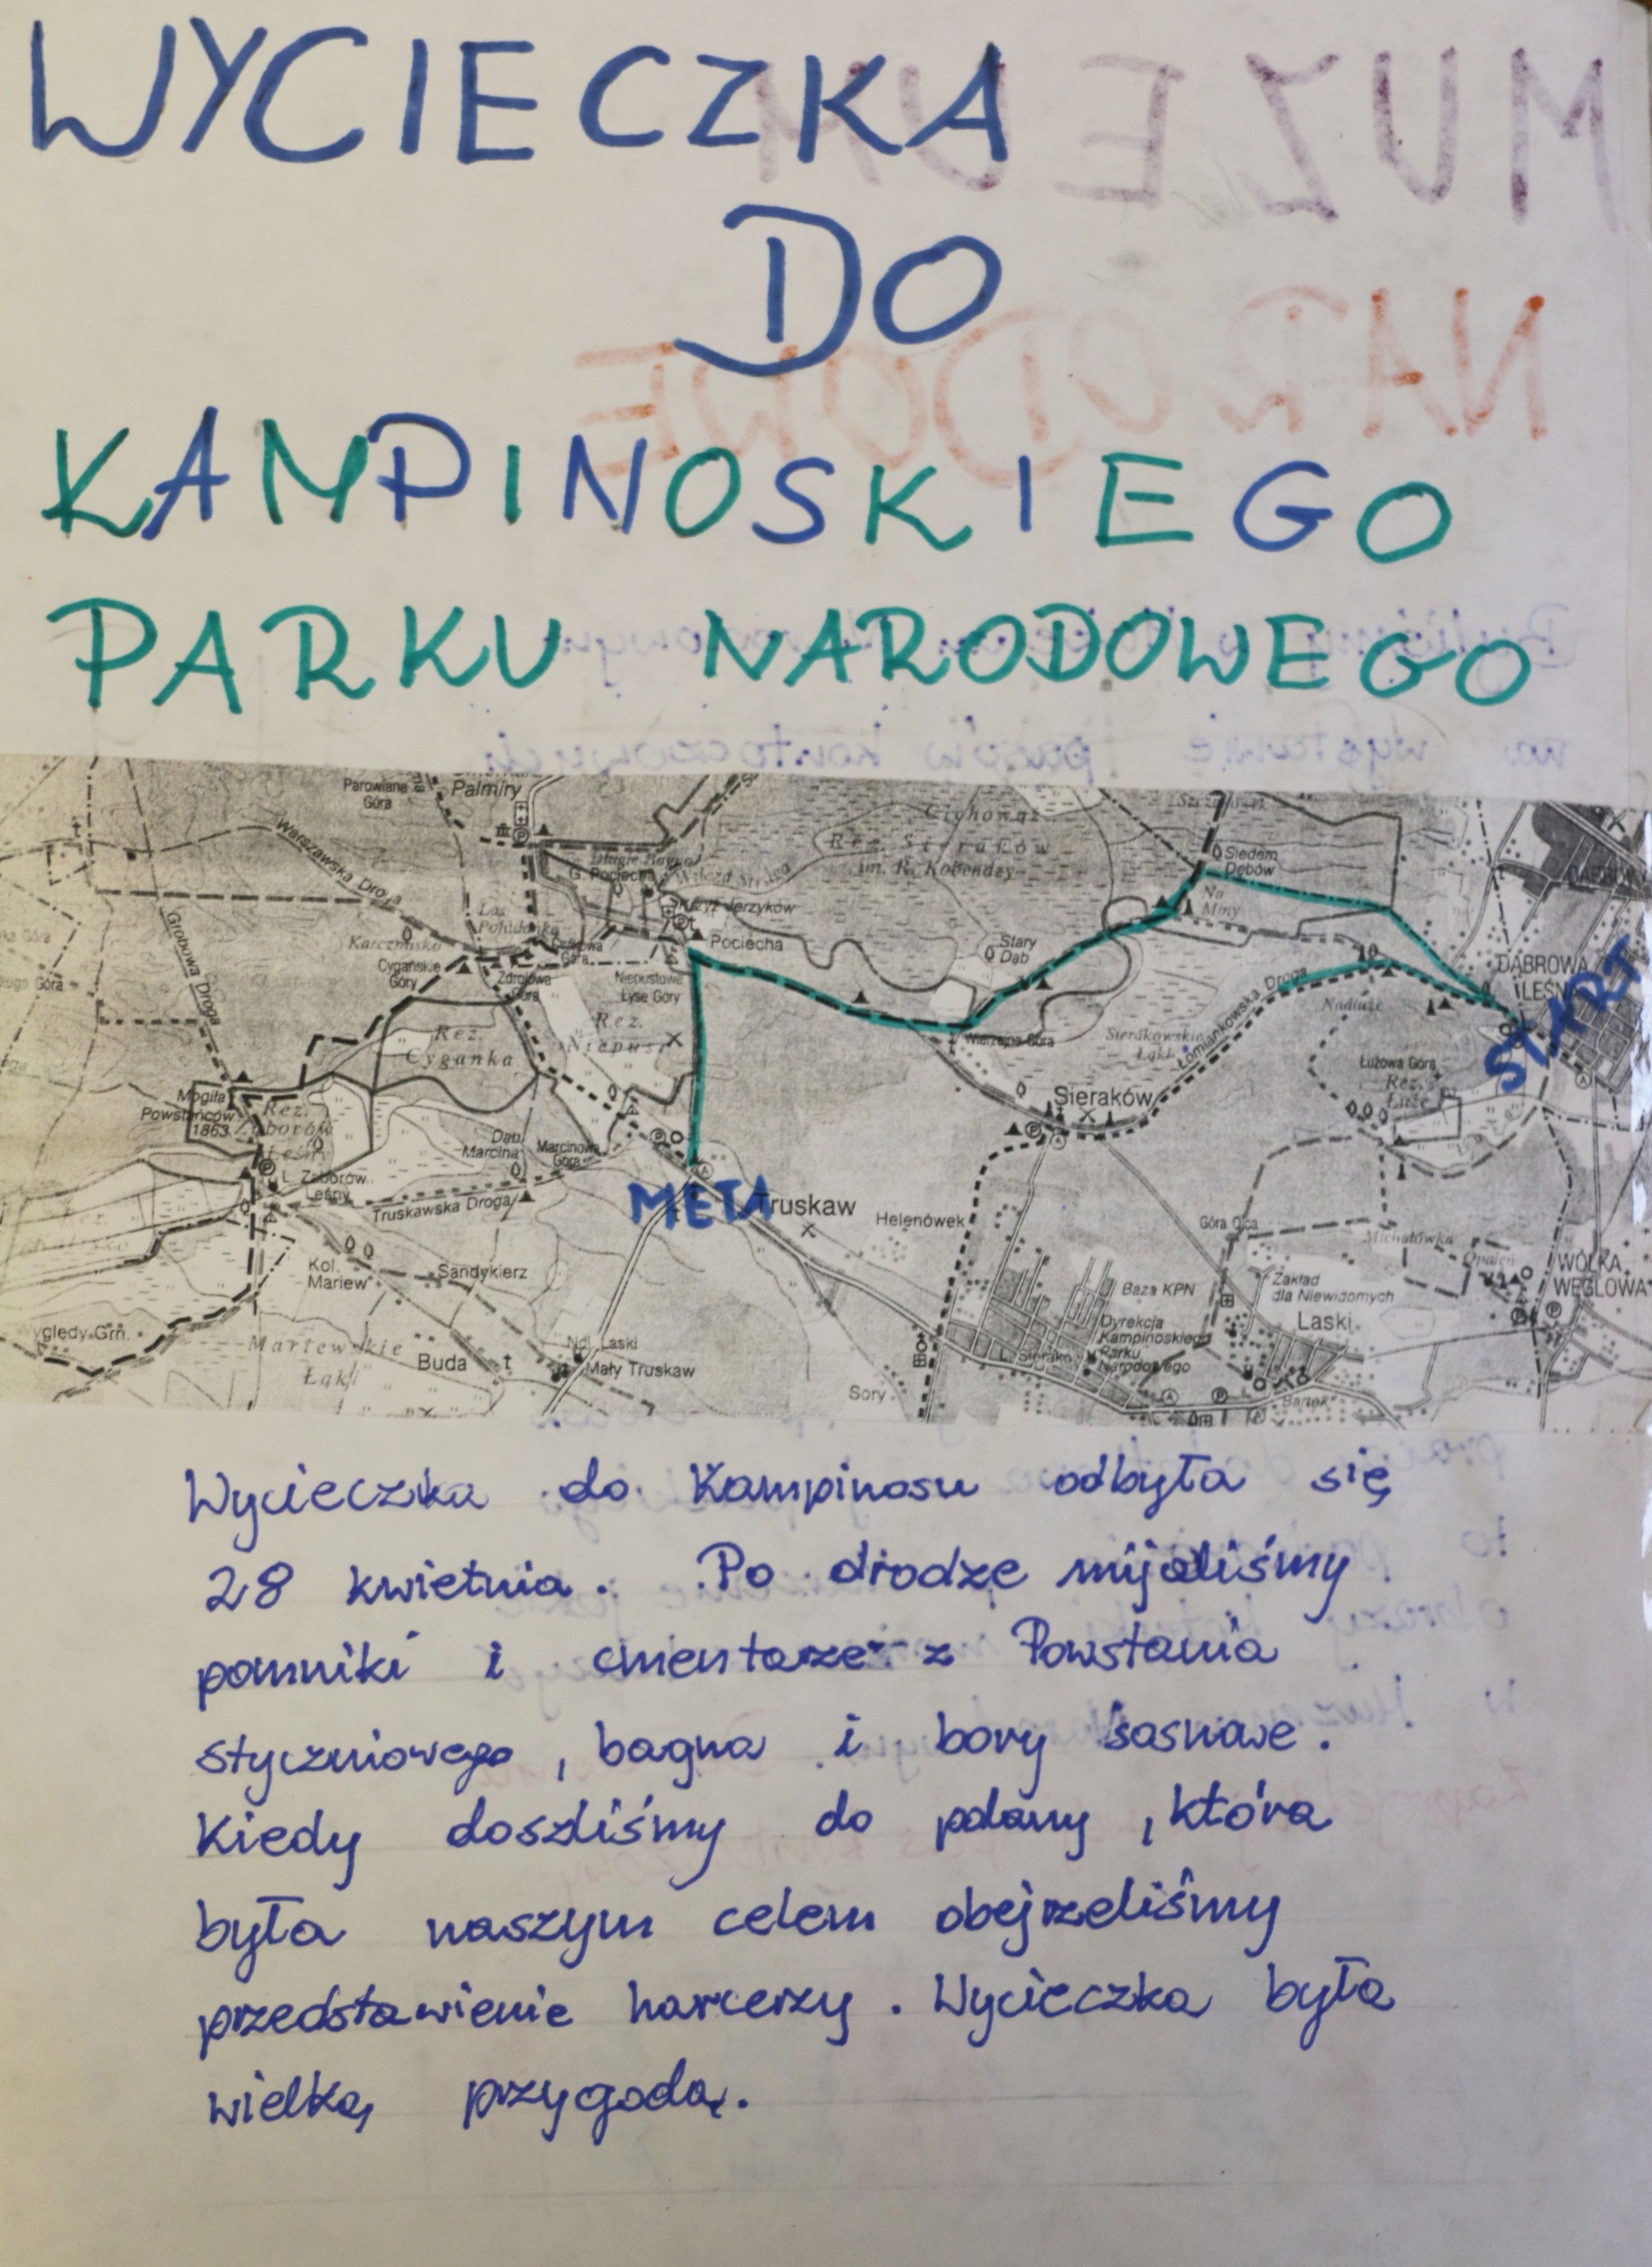 WYCIECZKA
DO
KAMPINOSKIEGO
PARKU NARODOWEGO
Parowiana
Góra
Palmiry
Warszawska Droga
Długie Bagno
G. Pociecha
Wilcza Struga
Krzyż Jerzyków
Pociecha
Cichowąż
Rez. Sieraków
im. R. Kobendzy
Siedem
Dębów
Na
Miny
Stary
Dąb
Grobowa Droga
Karczmisko
Cygańskie
Góry
Zdrojowa
Góra
Niepustowe
Łyse Góry
Rez.
Niepust
Rez.
Cyganka
Wierzejna Góra
Sierakowskie
Łąki
Łomiankowska Droga
Nadłuże
DĄBROWA
LEŚN
START
Łużowa Góra
Rez.
Łuże
Sieraków
Mogiła
Powstańców
1863
Rez.
Zaborów
Leśny
Dąb
Marcina
Marcinowa
Góra
L. Zaborów
Leśny
Truskawska Droga
META
Truskaw
Helenówek
Góra Ojca
Michałówka
Opaleń
WÓLKA
WĘGLOWA
Kol.
Mariew
Sandykierz
Baza KPN
Zakład
dla Niewidomych
Laski
Dyrekcja
Kampinoskiego
Parku
Narodowego
L. Sierako
Martewskie
Łąki
Buda
Ndl. Laski
Mały Truskaw
Sory
Bartek
Wycieczka do Kampinosu odbyła się
28 kwietnia. Po drodze mijaliśmy
pomniki i cmentarze z Powstania
styczniowego, bagna i bory sosnowe.
Kiedy doszliśmy do polany, która
była naszym celem obejrzeliśmy
przedstawienie harcerzy. Wycieczka była
wielką przygodą.